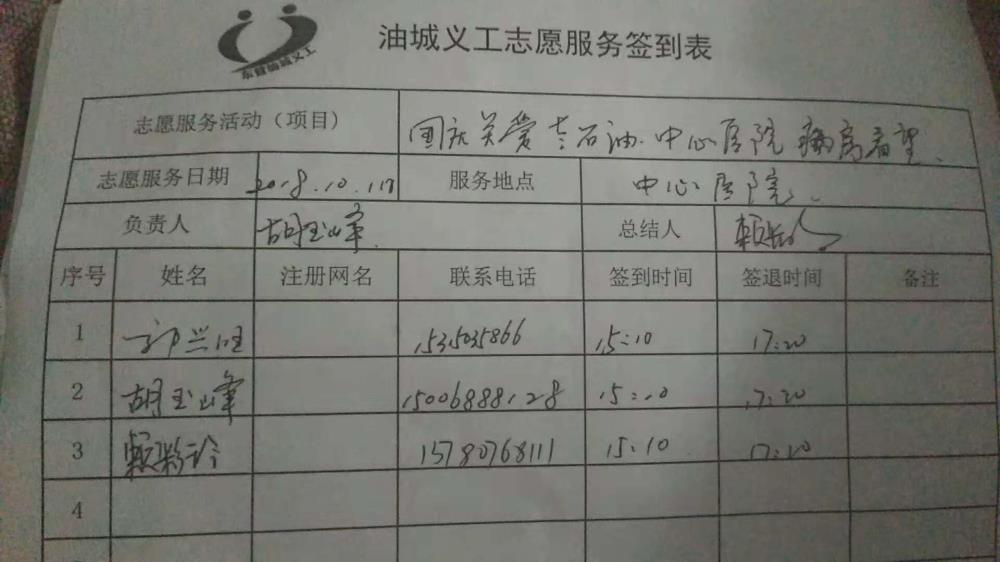 东营油城义工
油城义工志愿服务签到表
志愿服务活动（项目） 国庆关爱 石油中心医院 病房看望
志愿服务日期 2018.10.1 服务地点 中心医院
负责人 胡玉峰 总结人 赖
序号 姓名 注册网名 联系电话 签到时间 签退时间 备注
1 郭兴旺 15:10 17:20
2 胡玉峰 15006888128 15:10 17:20
3 赖 15780768111 15:10 17:20
4